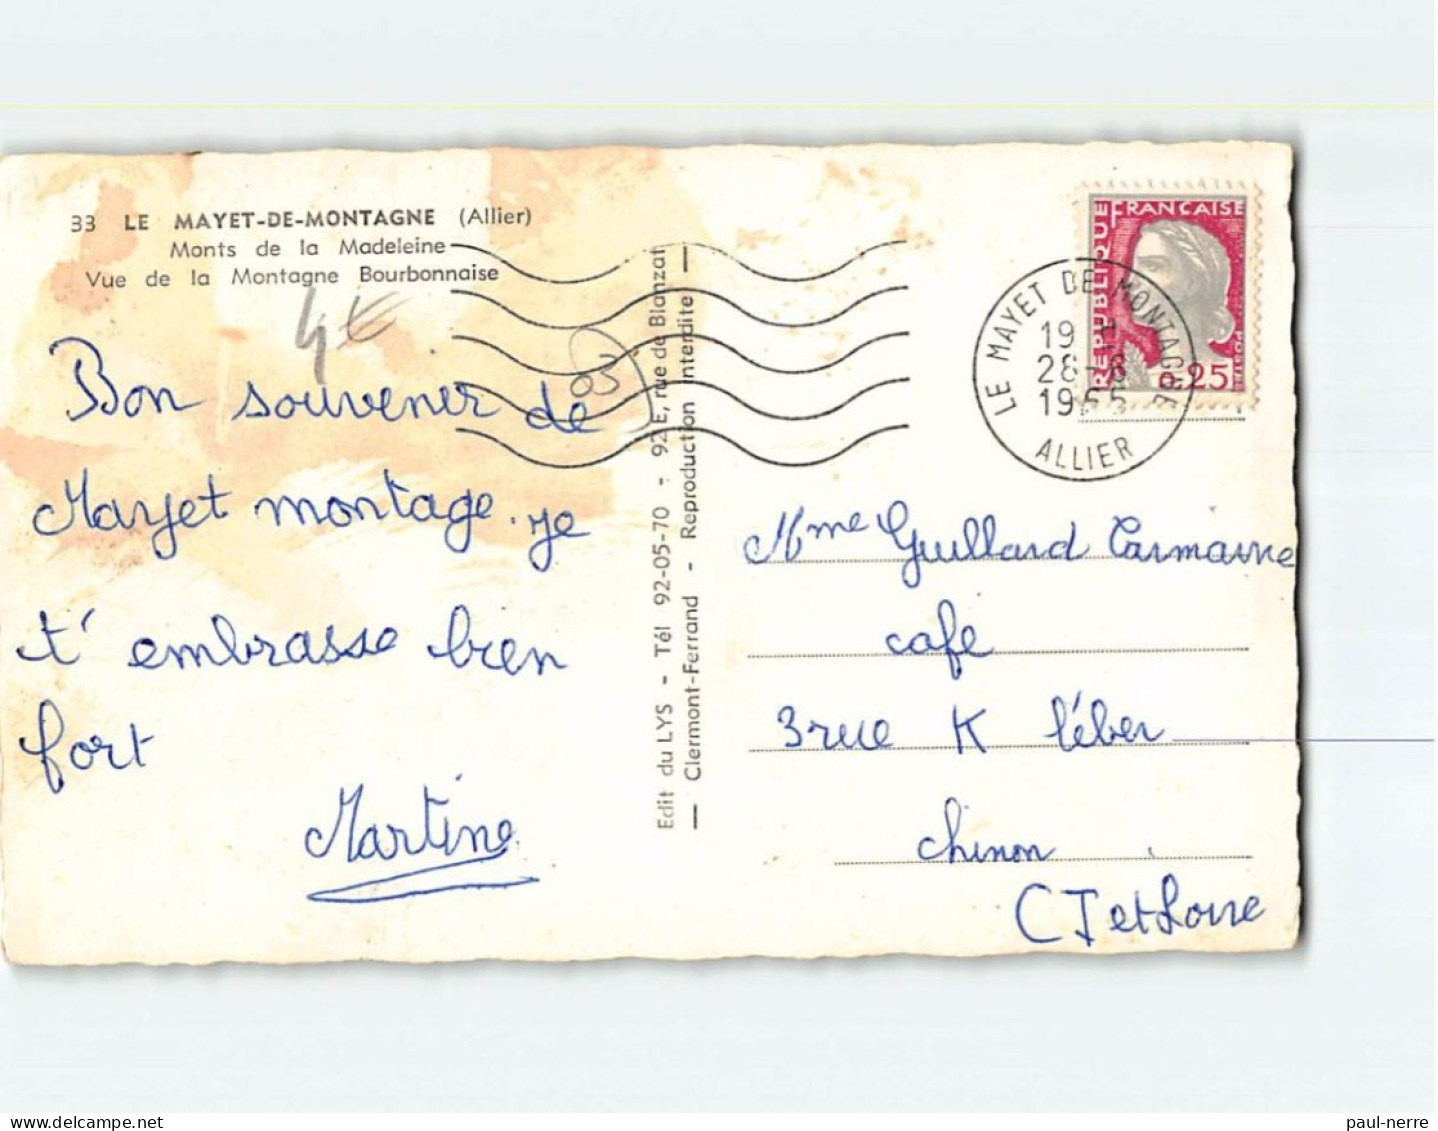 33 LE MAYET-DE-MONTAGNE (Allier)
Monts de la Madeleine
Vue de la Montagne Bourbonnaise
4€
03
Bon souvenir de
Mayet montage. je
t' embrasse bien
fort
Martine
Edit du LYS - Tél 92-05-70 - 92 E, rue de Blanzat
— Clermont-Ferrand - Reproduction interdite —
RÉPUBLIQUE FRANÇAISE
0,25
POSTES
LE MAYET DE MONTAGNE
19 H
28-8
ALLIER
Mme Guillard
café
3 rue K léber
Chinon
(I et Loire
paul-nerre